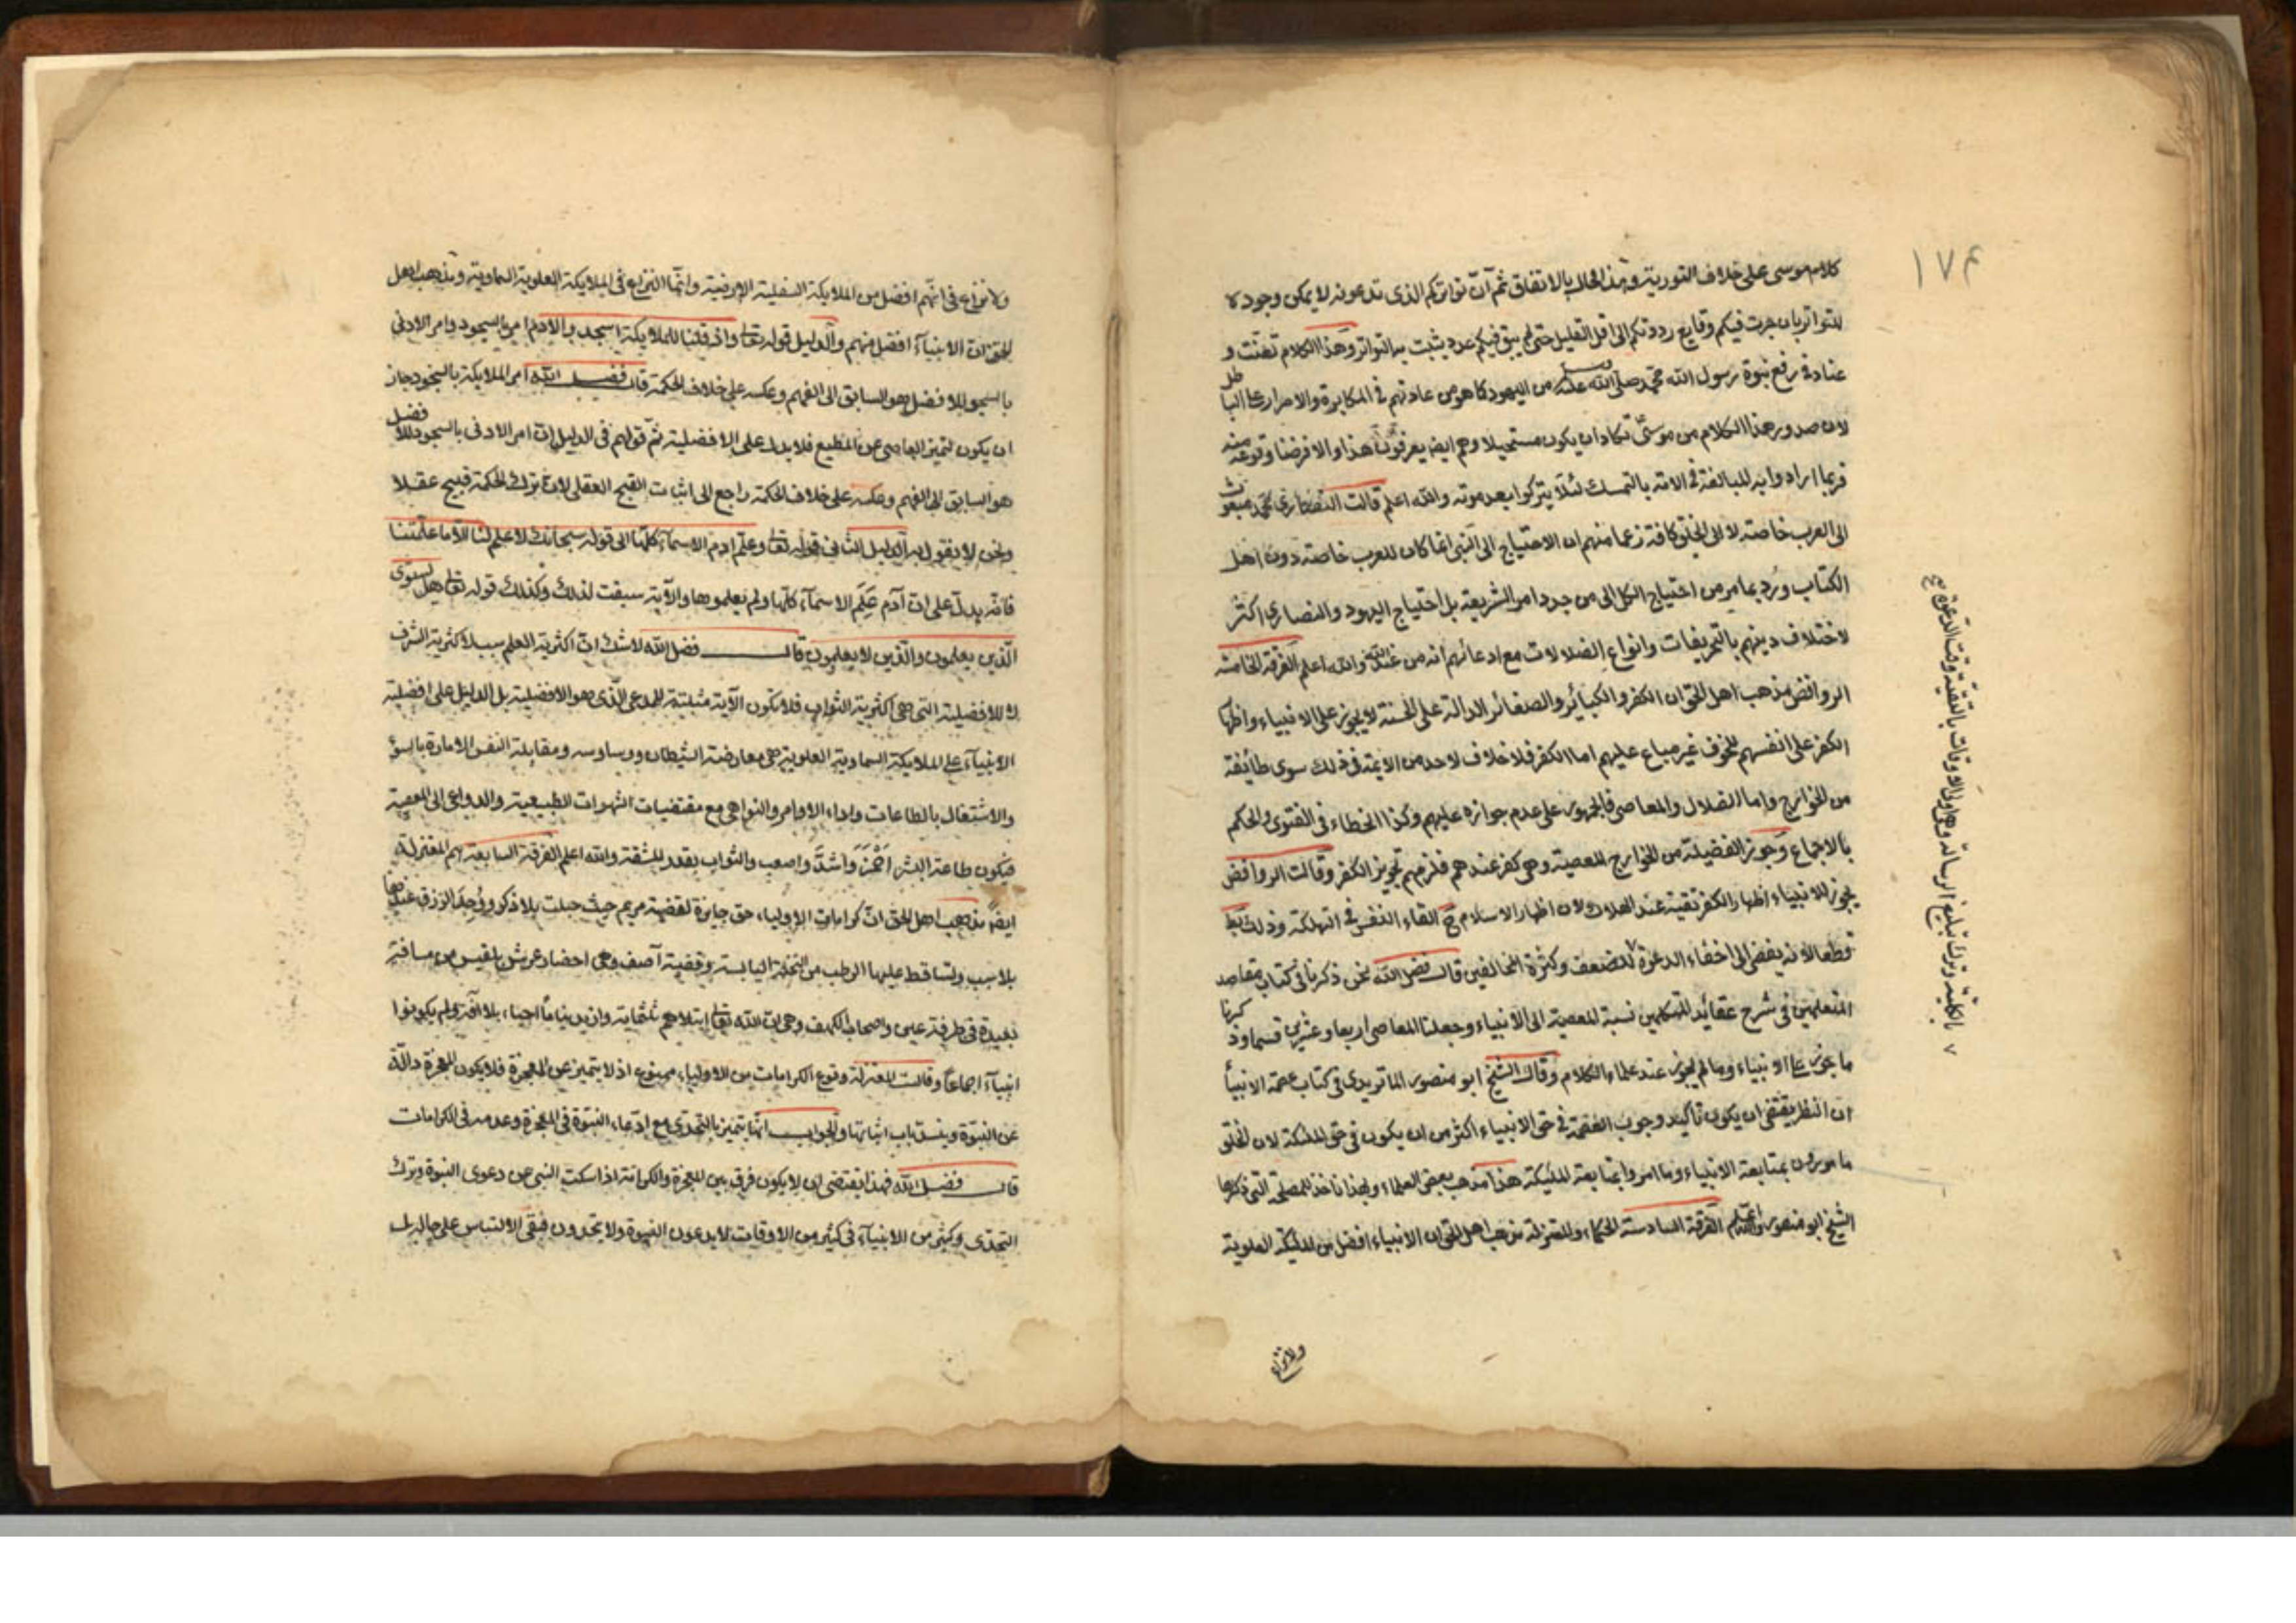 ١٧٤
كلام موسى على خلاف التورية وهذا محال بالاتفاق ثم ان تواتركم الذى تدعونه لا يمكن وجوده لا
للتواتر بان جرت فيكم وقايع رددتكم الى اقل القليل حتى لم يبق فيكم عدد يثبت به التواتر وهذا الكلام تعنت و
عناد فى رفع نبوة رسول الله محمد صلى الله عليه وسلم من اليهود كما هو من عادتهم فى المكابرة والاصرار على الباطل
لان صدور هذا الكلام من موسى تكاد ان يكون مستحيلا وهم ايضا يعرفون هذا والا فرضنا وقوعه منه
فربما ارادوا به للمبالغة فى الامة بالتمسك لئلا يتركوا بعد موته والله اعلم قالت النصارى محمد مبعوث
الى العرب خاصة لا الى الخلق كافة زعما منهم ان الاحتياج الى النبى انما كان للعرب خاصة دون اهل
الكتاب ورد بما مر من احتياج الكل الى من جدد امر الشريعة بل احتياج اليهود والنصارى اكثر
لاختلاف دينهم بالتحريفات وانواع الضلالات مع ادعائهم انه من عند الله والله اعلم الفرقة الخامسة
الروافض مذهب اهل الحق ان الكفر والكبائر والصغائر الدالة على الخسة لا يجوز على الانبياء واظهار
الكفر على انفسهم للخوف غير مباح عليهم اما الكفر فلا خلاف لاحد من الايمة فى ذلك سوى طائفة
من الخوارج واما الضلال والمعاصى فالجمهور على عدم جوازه عليهم وكذا الخطاء فى الفتوى والحكم
بالاجماع وجوز الفضيلة من الخوارج المعصية وهى كفر عندهم فلزمهم تجويز الكفر وقالت الروافض
يجوز للانبياء اظهار الكفر تقية عند الهلاك لان اظهار الاسلام ح القاء النفس فى التهلكة وذلك بط
قطعا لانه يفضى الى اخفاء الدعوة للضعف وكثرة المخالفين قال فضل الله نحن ذكرنا فى كتاب مقاصد
المتعلمين فى شرح عقائد المتكلمين نسبة المعصية الى الانبياء وجعلنا المعاصى اربعا وعشرين قسما وذكرنا
ما يجوز على الانبياء وما لم يجوز عند علماء الكلام وقال الشيخ ابو منصور الماتريدى فى كتاب عصمة الانبيأ
ان النظر يقتضى ان يكون تأكيد وجوب العصمة فى حق الانبياء اكثر من ان يكون فى حق الملئكة لان الخلق
مامورون بمتابعة الانبياء وما امروا بمتابعة الملئيكة هذا مذهب بعض العلماء وبهذا ناخذ للمصلحة التى ذكرها
الشيخ ابو منصور والله اعلم الفرقة السادسة الحكماء والمعتزلة مذهب اهل الحق ان الانبياء افضل من الملئيكة العلوية
ولا نزاع
بالكلية وترك تبليغ الرسالة وهو اولى الاوقات بالتقية وقت الدعوة صح
ولا نزاع فى انهم افضل من الملايكة السفلية الارضية وانما النزاع فى الملايكة العلوية السماوية ومذهب اهل
الحق ان الانبيآء افضل منهم والدليل قوله تعا واذ قلنا للملايكة اسجدوا لادم امر بالسجود وامر الادنى
بالسجود للافضل هو السابق الى الفهم وعكسه على خلاف الحكمة قال فضل الله امر الملايكة بالسجود جاز
ان يكون لتميز العاصى عن المطيع فلا يدل على الافضلية ثم قولهم فى الدليل ان امر الادنى بالسجود للافضل
هو السابق الى الفهم وعكسه على خلاف الحكمة راجع الى اثبات القبح العقلى لان ترك الحكمة قبيح عقلا
ونحن لا نقول به الدليل الثانى قوله تعا وعلم ادم الاسمآء كلها الى قوله سبحانك لا علم لنا الا ما علمتنا
فانه يدل على ان آدم عَلِمَ الاسمآء كلها ولم يعلموها والآية سيقت لذلك وكذلك قوله تعا هل يستوى
الذين يعلمون والذين لا يعلمون قال فضل الله لا شك ان اكثرية العلم سبب لاكثرية الشرف
لا للافضلية التى هى اكثرية الثواب فلا تكون الآية مثبتة للمدعى الذى هو الافضلية بل الدليل على افضلية
الانبيآء على الملايكة السماوية العلوية هى معارضة الشيطان ووساوسه ومقابلة النفس الامارة بالسوء
والاشتغال بالطاعات واداء الاوامر والنواهى مع مقتضيات الشهوات الطبيعية والدواعى الى المعصية
فيكون طاعة البشر احمز واشد واصعب والثواب بقدر المشقة والله اعلم الفرقة السابعة هم المعتزلة
ايضا مذهب اهل الحق ان كرامات الاولياء حق جايزة لقضية مريم حيث حبلت بلا ذكر ووُجد الرزق عندها
بلا سبب وتساقط عليها الرطب من النخلة اليابسة وقضية آصف وهى احضار عرش بلقيس من مسافة
بعيدة فى طرفة عين واصحاب الكهف وهى ان الله تعا ابتلاهم ثلثماية وازيد نياما احياء بلا آفة ولم يكونوا
انبيآء اجماعا وقالت المعتزلة وقوع الكرامات من الاولياء ممنوع اذ لا يتميز عن المعجزة فلا يكون المعجزة دالة
عن النبوة وينسد باب اثباتها والجواب انها يتميز بالتحدى مع ادعاء النبوة فى المعجزة وعدمه فى الكرامات
قال فضل الله فهذا يقتضى ان لا يكون فرق بين المعجزة والكرامة اذا سكت النبى عن دعوى النبوة وترك
التحدى وكثير من الانبيآء فى كثير من الاوقات لا يدعون النبوة ولا يتحدون فبقى الالتباس على حاله بل